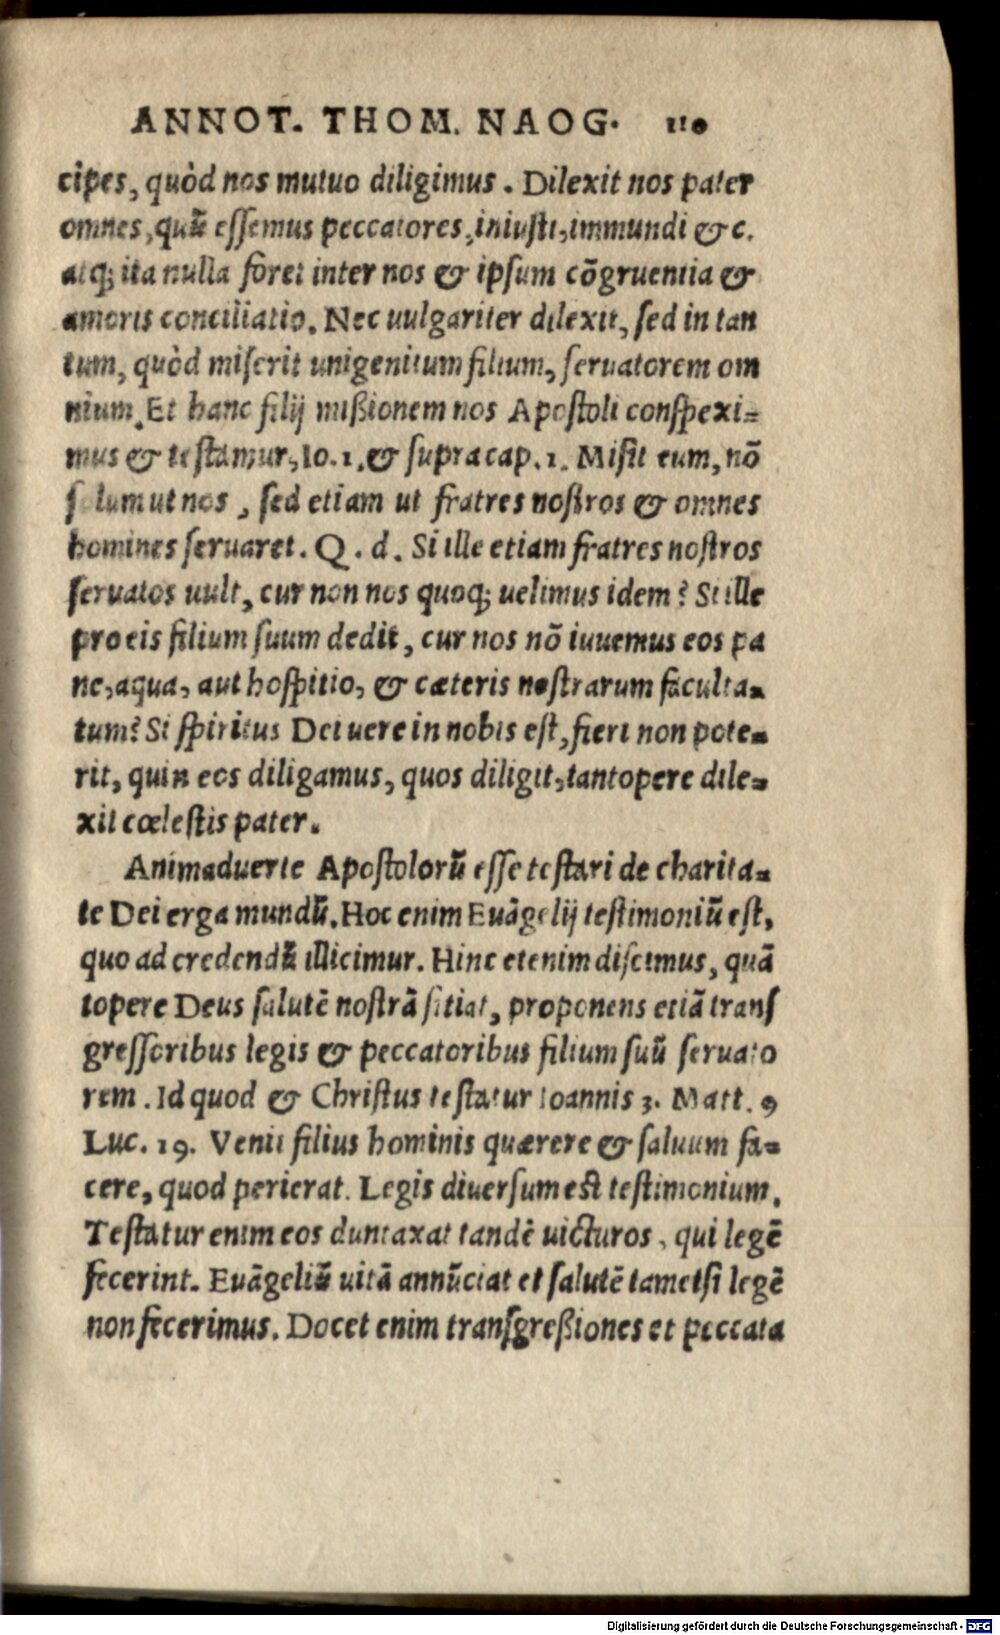 ANNOT. THOM. NAOG. 110
cipes, quòd nos mutuo diligimus. Dilexit nos pater
omnes, quũ essemus peccatores, iniusti, immundi & c.
atq; ita nulla foret inter nos & ipsum cõgruentia &
amoris conciliatio. Nec uulgariter dilexit, sed in tan
tum, quòd miserit unigenitum filium, seruatorem om
nium. Et hanc filij mißionem nos Apostoli conspexi=
mus & testamur, Io. 1. & supra cap. 1. Misit eum, nõ
solum ut nos, sed etiam ut fratres nostros & omnes
homines seruaret. Q. d. Si ille etiam fratres nostros
seruatos uult, cur non nos quoq; uelimus idem? Si ille
pro eis filium suum dedit, cur nos nõ iuuemus eos pa
ne, aqua, aut hospitio, & cæteris nostrarum faculta=
tum? Si spiritus Dei uere in nobis est, fieri non pote=
rit, quin eos diligamus, quos diligit, tantopere dile=
xit cœlestis pater.
Animaduerte Apostolorũ esse testari de charita=
te Dei erga mundũ. Hoc enim Euãgelij testimoniũ est,
quo ad credendũ illicimur. Hinc etenim discimus, quã
topere Deus salutẽ nostrã sitiat, proponens etiã trans
gressoribus legis & peccatoribus filium suũ seruato
rem. Id quod & Christus testatur Ioannis 3. Matt. 9
Luc. 19. Venit filius hominis quærere & saluum fa=
cere, quod perierat. Legis diuersum est testimonium.
Testatur enim eos duntaxat tandẽ uicturos, qui legẽ
fecerint. Euãgeliũ uitã annũciat et salutẽ tametsi legẽ
non fecerimus. Docet enim transgreßiones et peccata
Digitalisierung gefördert durch die Deutsche Forschungsgemeinschaft - DFG